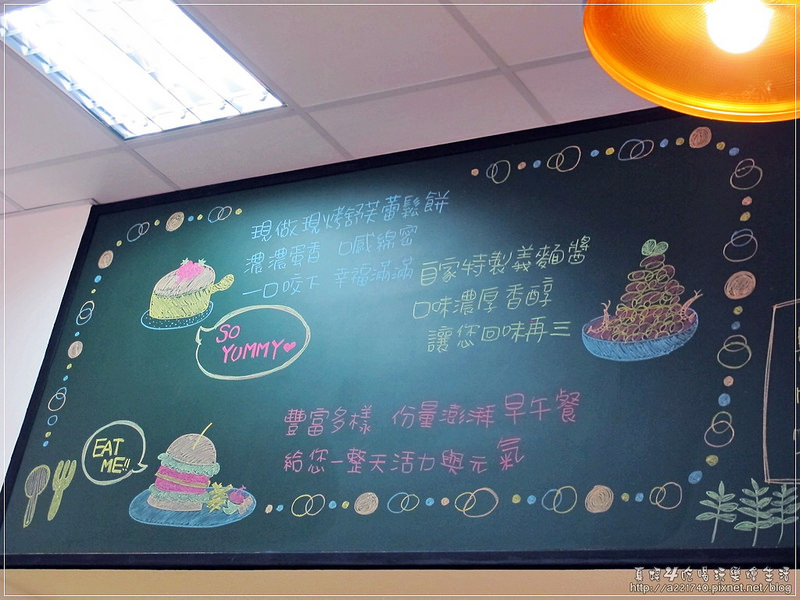 現做現烤舒芙蕾鬆餅
濃濃蛋香 口感綿密
一口咬下 幸福滿滿
自家特製義麵醬
口味濃厚香醇
讓您回味再三
SO
YUMMY
豐富多樣 份量澎湃早午餐
給您一整天活力與元氣
EAT
ME!!
http://a221740.pixnet.net/blog